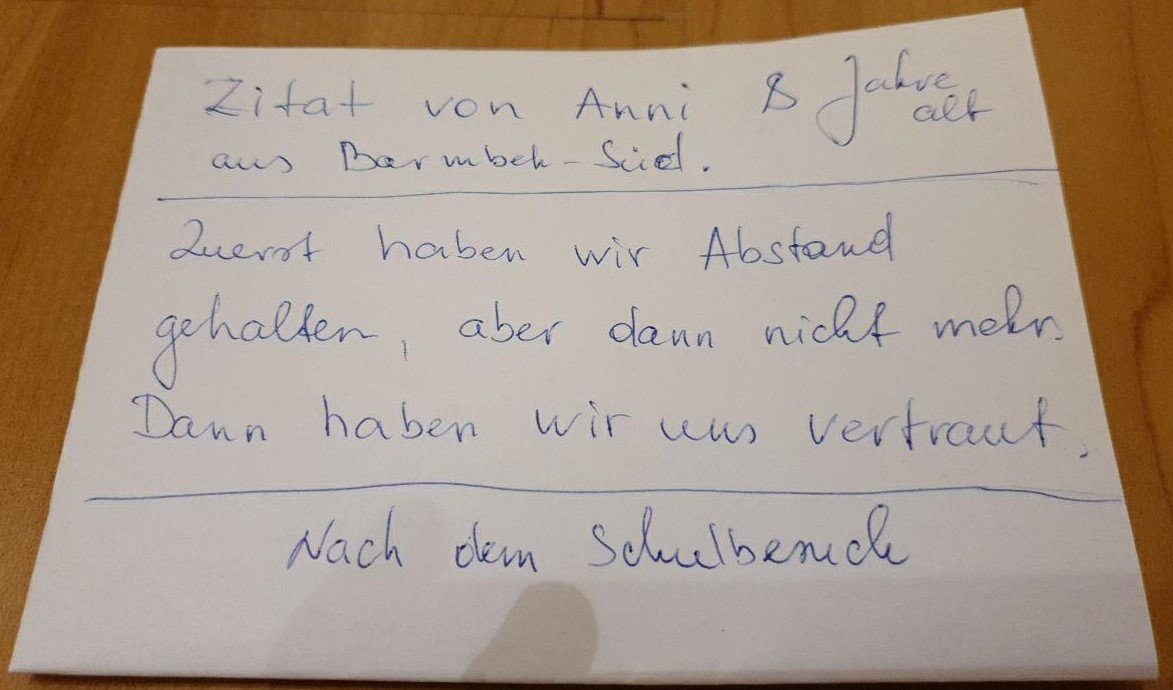 Zitat von Anni 8 Jahre alt
aus Barmbek-Süd.
Zuerst haben wir Abstand
gehalten, aber dann nicht mehr.
Dann haben wir uns vertraut.
Nach dem Schulbesuch